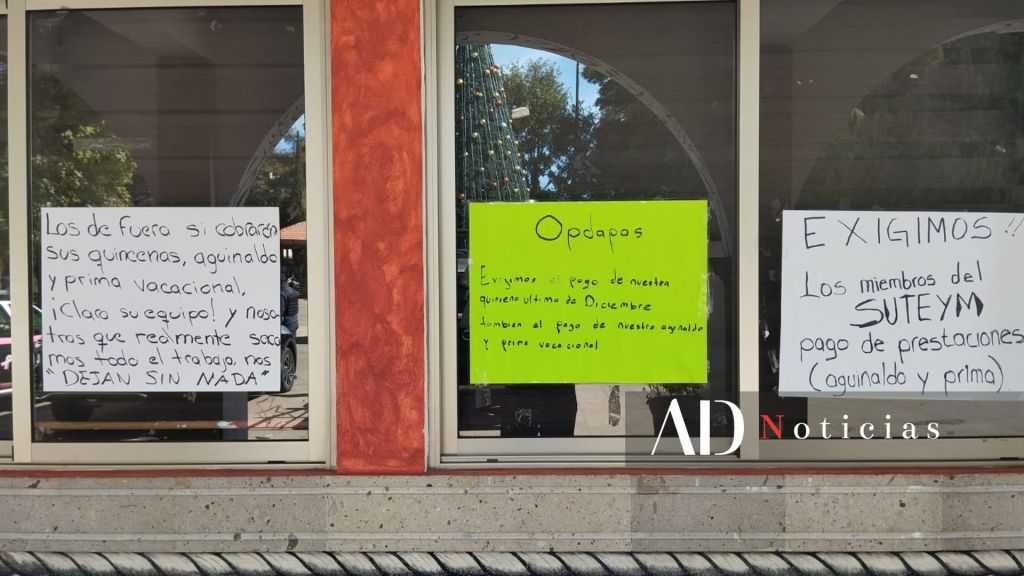 Los de Fuera si cobraron
sus quincenas, aguinaldo
y prima vacacional,
¡Claro su equipo! y noso-
tros que realmente saca
mos todo el trabajo, nos
"DEJAN SIN NADA"
Opdapas
Exigimos el pago de nuestra
quincena ultima de Diciembre
tambien el pago de nuestro aguinaldo
y prima vacacional
EXIGIMOS!!
Los miembros del
SUTEYM
pago de prestaciones
(aguinaldo y prima)
AD Noticias